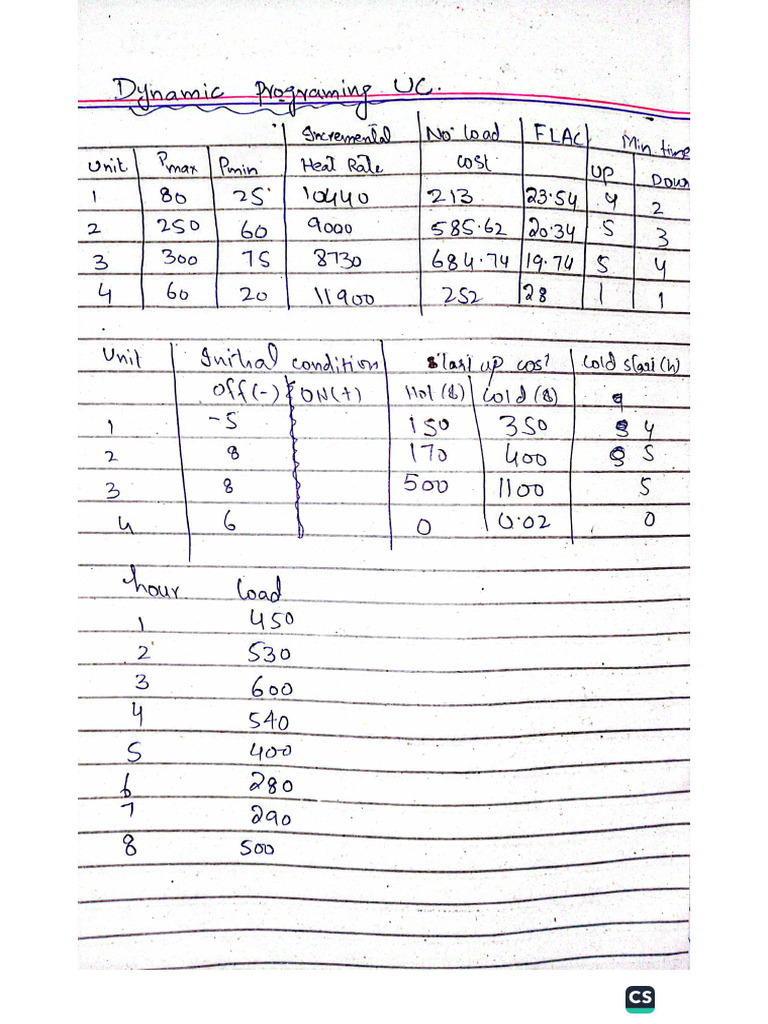 Dynamic Programing UC.
Incremental No. load FLAC Min. time
Unit Pmax Pmin Heat Rate cost UP Down
1 80 25 10440 213 23.54 4 2
2 250 60 9000 585.62 20.34 5 3
3 300 75 8730 684.74 19.74 5 4
4 60 20 11900 252 28 1 1
Unit Initial condition Start up cost Cold start (h)
Off(-) ON(+) Hot ($) Cold ($)
1 -5 150 350 4
2 8 170 400 5
3 8 500 1100 5
4 6 0 0.02 0
hour load
1 450
2 530
3 600
4 540
5 400
6 280
7 290
8 500
CS